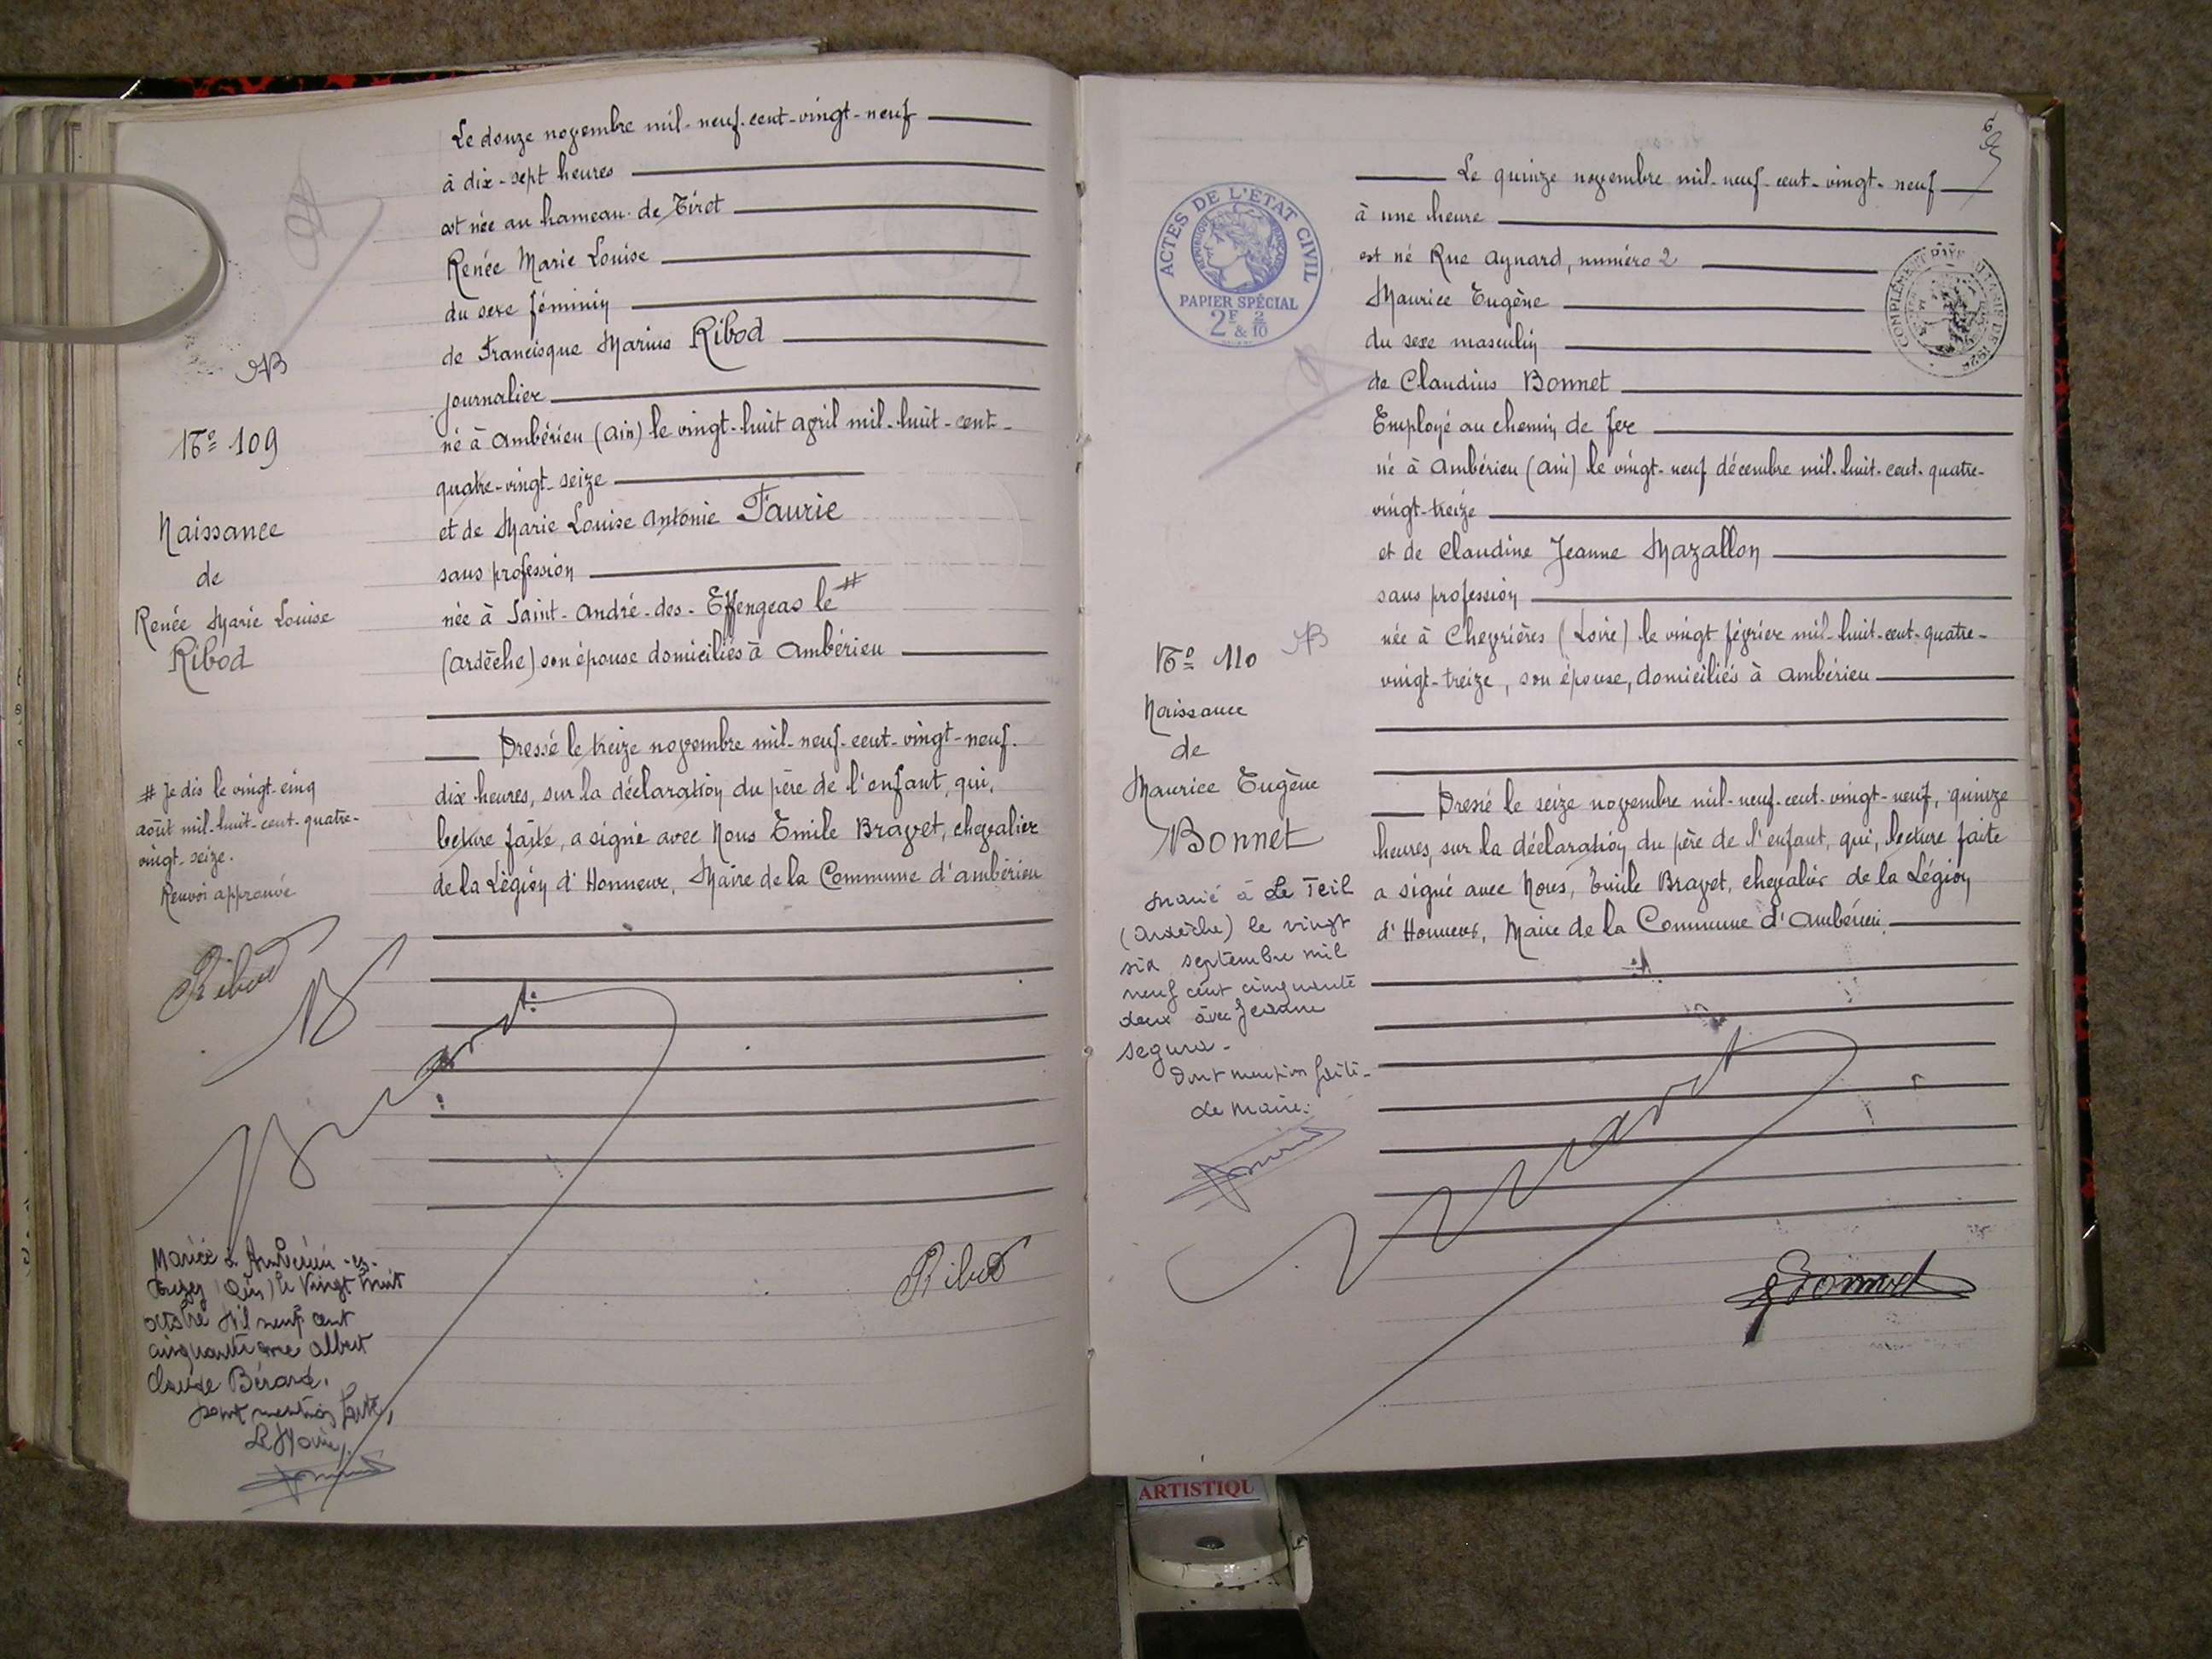 N° 109
Naissance
de
Renée Marie Louise
Ribod
# Je dis le vingt-cinq
août mil-huit-cent-quatre-
vingt-seize.
Renvoi approuvé
Ribod
Mariée à Ambérieu-en-
Bugey (Ain) le vingt huit
octobre mil neuf cent
cinquante avec Albert
Claude Bérard.
Dont mention faite,
Le Maire,
Le douze novembre mil-neuf-cent-vingt-neuf
à dix-sept heures
est née au hameau de Tiret
Renée Marie Louise
du sexe féminin
de Francisque Marius Ribod
journalier
né à Ambérieu (Ain) le vingt-huit avril mil-huit-cent-
quatre-vingt-seize
et de Marie Louise Antonie Faurie
sans profession
née à Saint-André-des-Effengeas le #
(Ardèche) son épouse domiciliés à Ambérieu
Dressé le treize novembre mil-neuf-cent-vingt-neuf.
dix heures, sur la déclaration du père de l'enfant, qui,
lecture faite, a signé avec Nous Emile Bravet, chevalier
de la Légion d'Honneur, Maire de la Commune d'Ambérieu
Bravet
Ribod
ACTES DE L'ÉTAT CIVIL
RÉPUBLIQUE FRANÇAISE
PAPIER SPÉCIAL
2F & 2/10
N° 110
Naissance
de
Maurice Eugène
Bonnet
Marié à Le Teil
(Ardèche) le vingt
six septembre mil
neuf cent cinquante
deux avec Jeanne
Segura-
Dont mention faite-
Le Maire:
Le quinze novembre mil-neuf-cent-vingt-neuf
à une heure
est né Rue Aynard, numéro 2
COMPLÉMENT PAYÉ
Maurice Eugène
du sexe masculin
de Claudius Bonnet
Employé au chemin de fer
né à Ambérieu (Ain) le vingt-neuf décembre mil-huit-cent-quatre-
vingt-treize
et de Claudine Jeanne Mazallon
sans profession
née à Chevrières (Loire) le vingt février mil-huit-cent-quatre-
vingt-treize, son épouse, domiciliés à Ambérieu
Dressé le seize novembre mil-neuf-cent-vingt-neuf, quinze
heures, sur la déclaration du père de l'enfant, qui, lecture faite
a signé avec Nous, Emile Bravet, chevalier de la Légion
d'Honneur, Maire de la Commune d'Ambérieu.
Bravet
Bonnet
ARTISTIQU